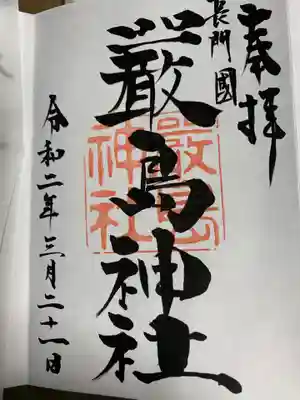 奉拝
長門國
嚴島神社
嚴島神社
令和二年三月二十一日